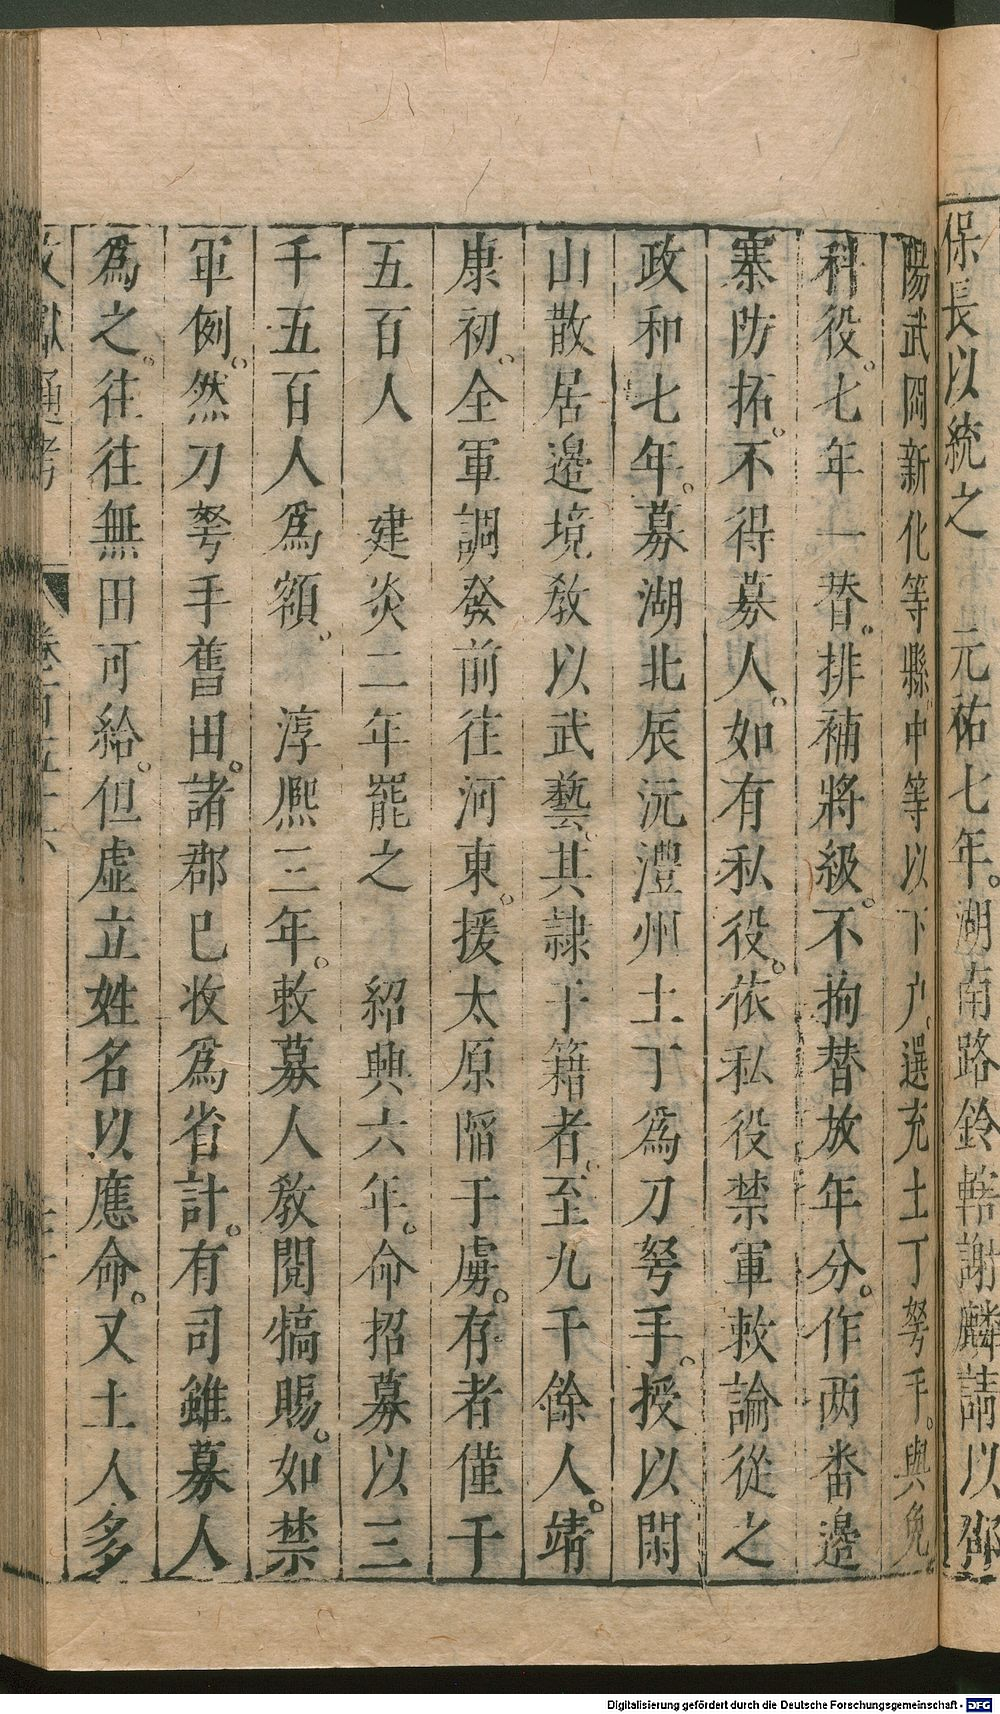 保長以統之　元祐七年。湖南路鈐轄謝麟請以邵
陽武岡新化等縣中等以下户。選充土丁弩手。與免
科役。七年一替。排補將級。不拘替放年分。作两番邊
寨防拓。不得募人。如有私役。依私役禁軍敕論從之
政和七年。募湖北辰沅澧州土丁爲刀弩手。授以閑
山散居邊境教以武藝。其隷于籍者。至九千餘人。靖
康初。全軍調發前往河東。援太原䧟于虜。存者僅千
五百人　建炎二年罷之　紹興六年。命招募以三
千五百人爲額。　淳熈三年。敕募人教閱犒賜。如禁
軍例。然刀弩手舊田。諸郡已收爲省計。有司雖募人
爲之。往往無田可給。但虛立姓名以應命。又土人多
文獻通考　卷百五十六
Digitalisierung gefördert durch die Deutsche Forschungsgemeinschaft - DFG